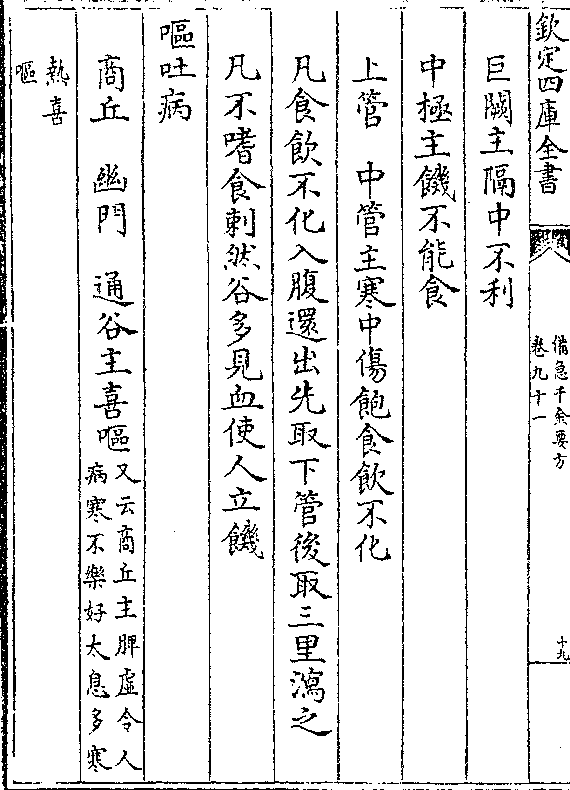 欽定四庫全書
備急千金要方
卷九十一
十九
巨闕主隔中不利
中極主饑不能食
上管 中管主寒中傷飽食飲不化
凡食飲不化入腹還出先取下管後取三里瀉之
凡不嗜食刺然谷多見血使人立饑
嘔吐病
商丘 幽門 通谷主喜嘔又云商丘主脾虛令人
病寒不樂好太息多寒
熱喜
嘔